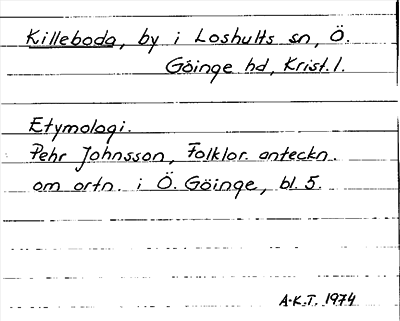 Killeboda, by i Loshults sn, Ö.
Göinge hd, Krist. l.
Etymologi.
Pehr Johnsson, Folklor. anteckn.
om ortn. i Ö. Göinge, bl. 5.
A.K.T. 1974